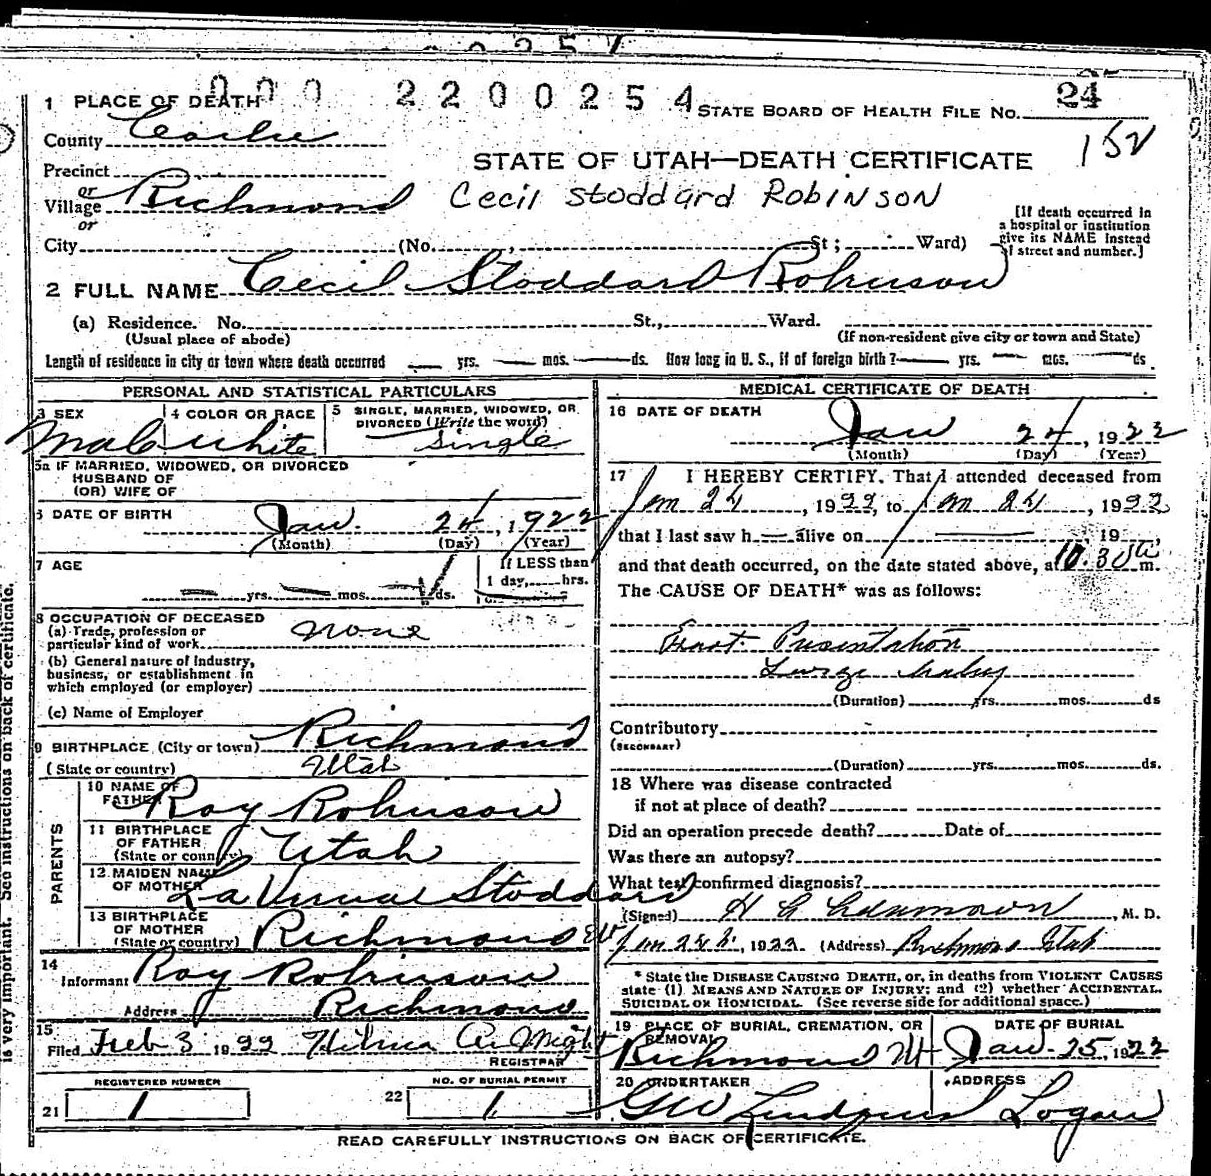 0002200254
24
1 PLACE OF DEATH
STATE BOARD OF HEALTH FILE No.
152
County Cache
STATE OF UTAH—DEATH CERTIFICATE
Precinct
or
Village Richmond
Cecil Stoddard Robinson
or
[If death occurred in
a hospital or institution
give its NAME instead
of street and number.]
City (No. , St ; Ward)
2 FULL NAME Cecil Stoddard Robinson
(a) Residence. No. St., Ward.
(Usual place of abode) (If non-resident give city or town and State)
Length of residence in city or town where death occurred — yrs. — mos. — ds. How long in U. S., if of foreign birth? — yrs. — mos. — ds.
PERSONAL AND STATISTICAL PARTICULARS
3 SEX
Male
4 COLOR OR RACE
White
5 SINGLE, MARRIED, WIDOWED, OR
DIVORCED (Write the word)
Single
5a IF MARRIED, WIDOWED, OR DIVORCED
HUSBAND OF
(OR) WIFE OF
6 DATE OF BIRTH
Jan. 24, 1922
(Month) (Day) (Year)
7 AGE
If LESS than
1 day, hrs.
— yrs. — mos. ds.
8 OCCUPATION OF DECEASED
(a) Trade, profession or
particular kind of work none
(b) General nature of Industry,
business, or establishment in
which employed (or employer)
(c) Name of Employer
9 BIRTHPLACE (City or town) Richmond
(State or country) Utah
PARENTS
10 NAME OF
FATHER Roy Robinson
11 BIRTHPLACE
OF FATHER
(State or country) Utah
12 MAIDEN NAME
OF MOTHER La Stoddard
13 BIRTHPLACE
OF MOTHER
(State or country) Richmond
14
Informant Roy Robinson
Address Richmond
15
Filed Feb 3 1922
REGISTRAR
REGISTERED NUMBER
21 1
NO. OF BURIAL PERMIT
22 1
MEDICAL CERTIFICATE OF DEATH
16 DATE OF DEATH
Jan 24, 1922
(Month) (Day) (Year)
17 I HEREBY CERTIFY, That I attended deceased from
Jan 24, 1922, to Jan 24, 1922
that I last saw h — alive on — , 19
and that death occurred, on the date stated above, at 10.30 m.
The CAUSE OF DEATH* was as follows:
Presentation
Large baby
(Duration) yrs. mos. ds
Contributory
(SECONDARY)
(Duration) yrs. mos. ds.
18 Where was disease contracted
if not at place of death?
Did an operation precede death? Date of
Was there an autopsy?
What test confirmed diagnosis?
(Signed) , M. D.
Jan 24, 1922 (Address) Richmond Utah
* State the DISEASE CAUSING DEATH, or, in deaths from VIOLENT CAUSES
state (1) MEANS AND NATURE OF INJURY; and (2) whether ACCIDENTAL,
SUICIDAL OR HOMICIDAL. (See reverse side for additional space.)
19 PLACE OF BURIAL, CREMATION, OR
REMOVAL
Richmond Ut
DATE OF BURIAL
Jan. 25, 1922
20 UNDERTAKER
GW Lindquist
ADDRESS
Logan
READ CAREFULLY INSTRUCTIONS ON BACK OF CERTIFICATE.
is very important. See instructions on back of certificate.